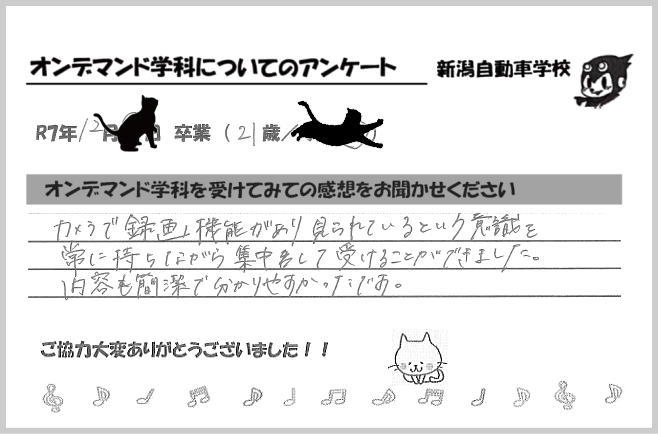 オンデマンド学科についてのアンケート 新潟自動車学校
R7年12月 日 卒業（21歳/
オンデマンド学科を受けてみての感想をお聞かせください
カメラで録画機能があり見られているという意識を
常に持ちながら集中して受けることができました。
内容も簡潔で分かりやすかったです。
ご協力大変ありがとうございました！！